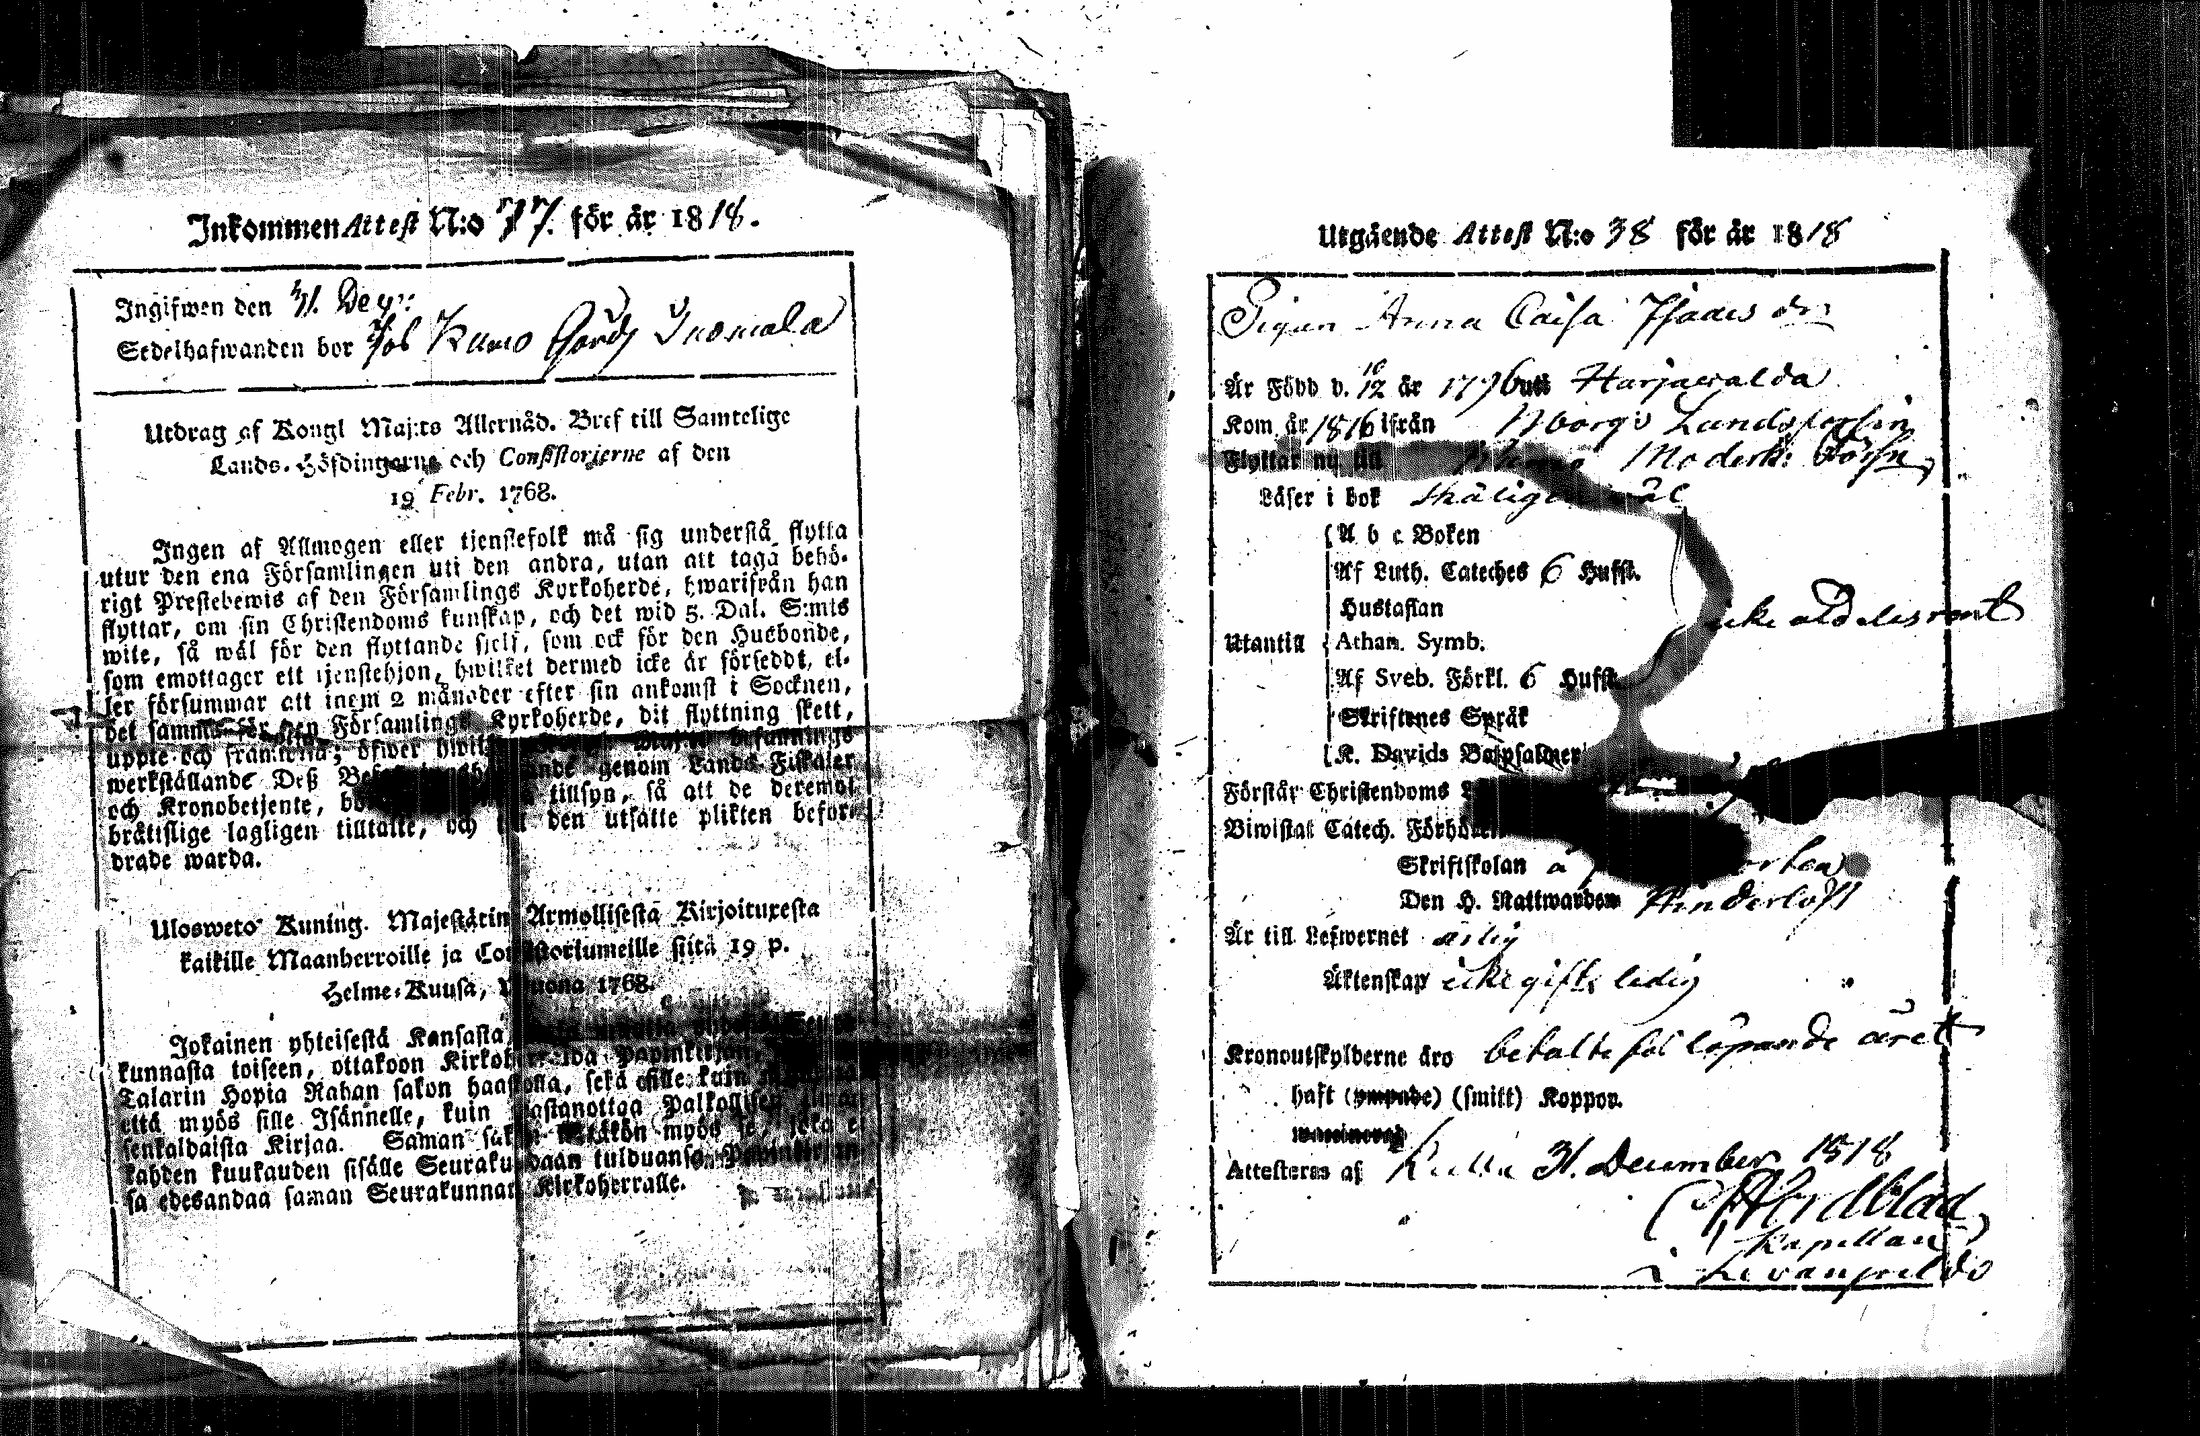 Inkommen Attest N:o 77. för år 1818.
Ingifwen den 31. Decr:
Sedelhafwanden bor Kumo Suomala
Utdrag af Kongl Maj:ts Allernåd. Bref till Samtelige
Lands-Höfdingarne och Consistorierne af den
19 Febr. 1768.
Ingen af Allmogen eller tjenstefolk må sig understå flytta
utur den ena Församlingen uti den andra, utan att taga behö-
rigt Prestebewis af den Församlings Kyrkoherde, hwarifrån han
flyttar, om sin Christendoms kunskap, och det wid 5. Dal. S:mts
wite, så wäl för den flyttande sjelf, som ock för den Husbonde,
som emottager ett tjenstehjon, hwilket dermed icke är försedt, el-
ler försummar att inom 2 månader efter sin ankomst i Socknen,
det samma för den Församlings Kyrkoherde, dit flyttning skett,
uppte och framwisa; öfwer
werkställande Deß genom Lands-Fiskaler
och Kronobetjente, tillsyn, så att de deremot
bråttslige lagligen tilltalte, och till den utsatte plikten befor-
drade warda.
Ulosweto Kuning. Majestätin Armollisesta Kirjoituxesta
kaikille Maanherroille ja Consistoriumeille siitä 19 p.
Helme-Kuusa, Wuona 1768.
Jokainen yhteisestä Kansasta
kunnasta toiseen, ottakoon Kirkoherralda Papinkirjan,
Talarin Hopia Rahan sakon haastolla, sekä sille kuin
että myös sille Isännelle, kuin wastanottaa Palkollisen
senkaldaista Kirjaa. Saman sakon wetäkön myös se, joka ei
kahden kuukauden sisälle Seurakundaan tulduansa Papinkirjan
sa edesandaa saman Seurakunnan Kirkoherralle.
Utgående Attest N:o 38 för år 1818
Pigan Anna Caisa Isaacs dr
Är Född d. 12/10 år 1796 uti Harjawalda
Kom år 1816 ifrån Landsförsln
Flyttar nu till Kumo Moderk: Församl
Läser i bok skäligen wäl
A b c Boken
Af Luth. Cateches 6 Hufst.
Hustaflan
icke aldeles rent
Utantill Athan. Symb.
Af Sveb. Förkl. 6 Hufst.
Skriftenes Språk
K. Davids Botpsalmer
Förstår Christendoms
Biwistat Catech. Förhören
Skriftskolan å
Den H. Nattwarden Hinderlöst
Är till Lefwernet ärlig
Äktenskap icke gift, ledig
Kronoutskylderne äro betalte för löpande året
haft (ympade) (smitt) Koppor.
Attesteras af Kulla 31. December 1818
Nordblad
Kapellan